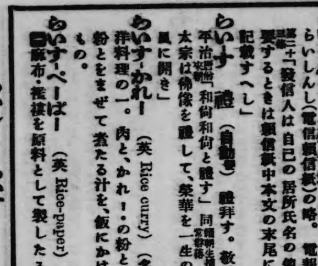 らいしんし(電信頼信紙)の略。電報
第二十「發信人は自己の居所氏名の
要するときは頼信紙中本文の末尾に
記載すへし」
らい-す 禮 (自動) 禮拜す。敬
平治「和尚和尚と禮す」同
太宗は佛像を禮して、榮華を一生の
風に開き」
らいす-かれー (英 Rice curry)
洋料理の一。肉と、かれーの粉と
粉とをまぜて煮たる汁を、飯にかけ
もの。
らいす-ぺーぱー (英 Rice-paper)
麻布・襤褸を原料として製したる